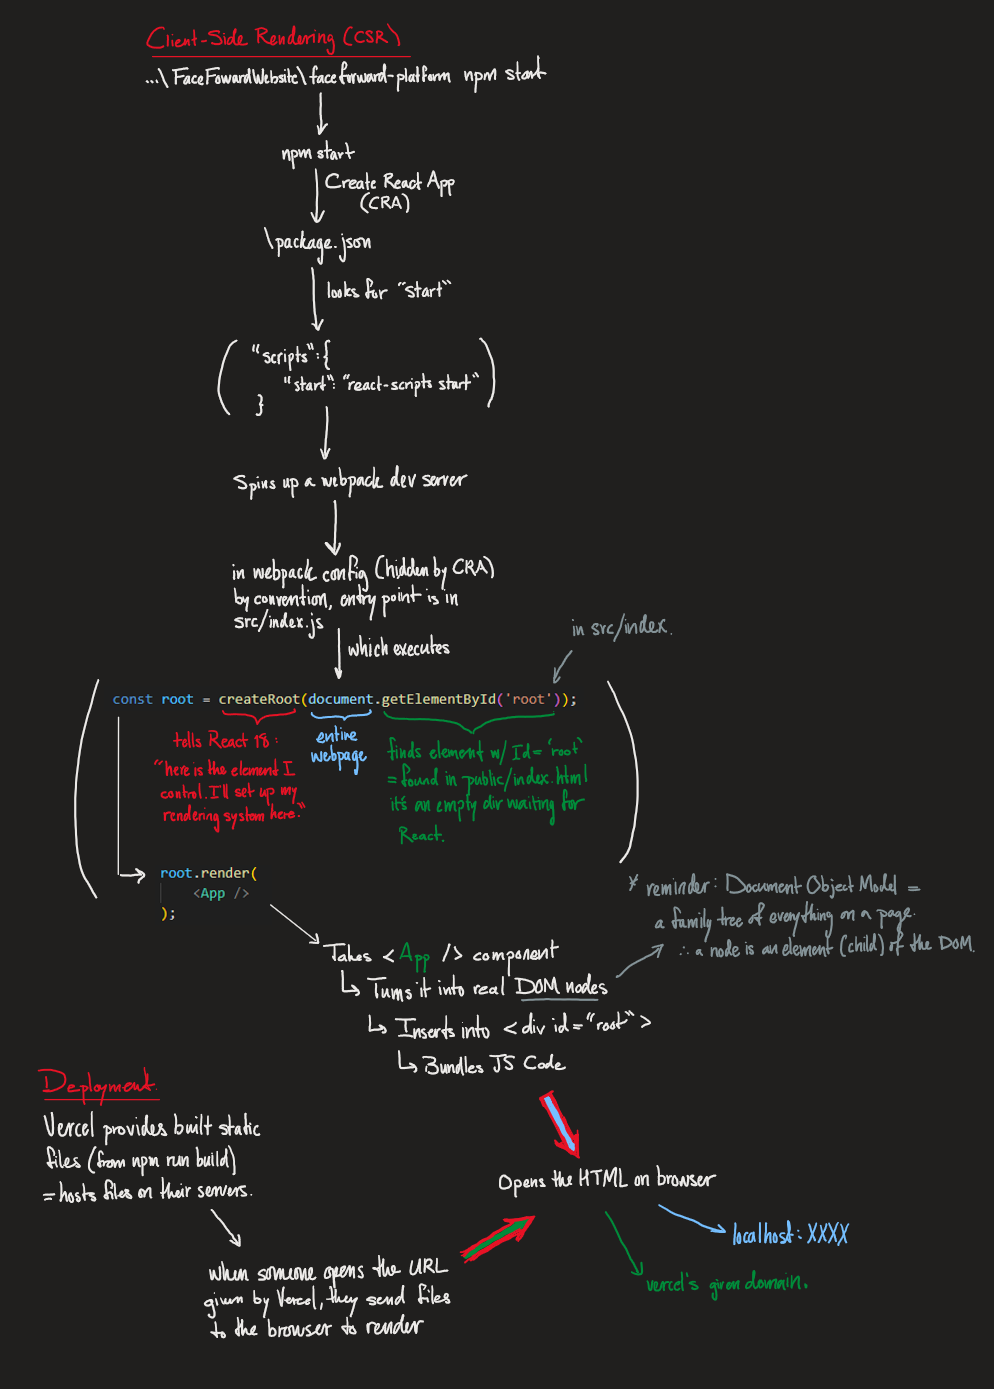 Client-Side Rendering (CSR)
...\FaceFowardWebsite\faceforward-platform npm start
npm start
Create React App
(CRA)
\package.json
looks for "start"
"scripts":{
"start": "react-scripts start"
}
Spins up a webpack dev server
in webpack config (hidden by CRA)
by convention, entry point is in
src/index.js
which executes
in src/index.
const root = createRoot(document.getElementById('root'));
tells React 18:
"here is the element I
control. I'll set up my
rendering system here."
entire
webpage
finds element w/ Id = 'root'
= found in public/index.html
it's an empty div waiting for
React.
root.render(
<App />
);
* reminder: Document Object Model =
a family tree of everything on a page.
∴ a node is an element (child) of the DOM.
Takes <App /> component
↳ Turns it into real DOM nodes
↳ Inserts into <div id="root">
↳ Bundles JS Code
Deployment.
Vercel provides built static
files (from npm run build)
= hosts files on their servers.
when someone opens the URL
given by Vercel, they send files
to the browser to render
Opens the HTML on browser
localhost: XXXX
vercel's given domain.